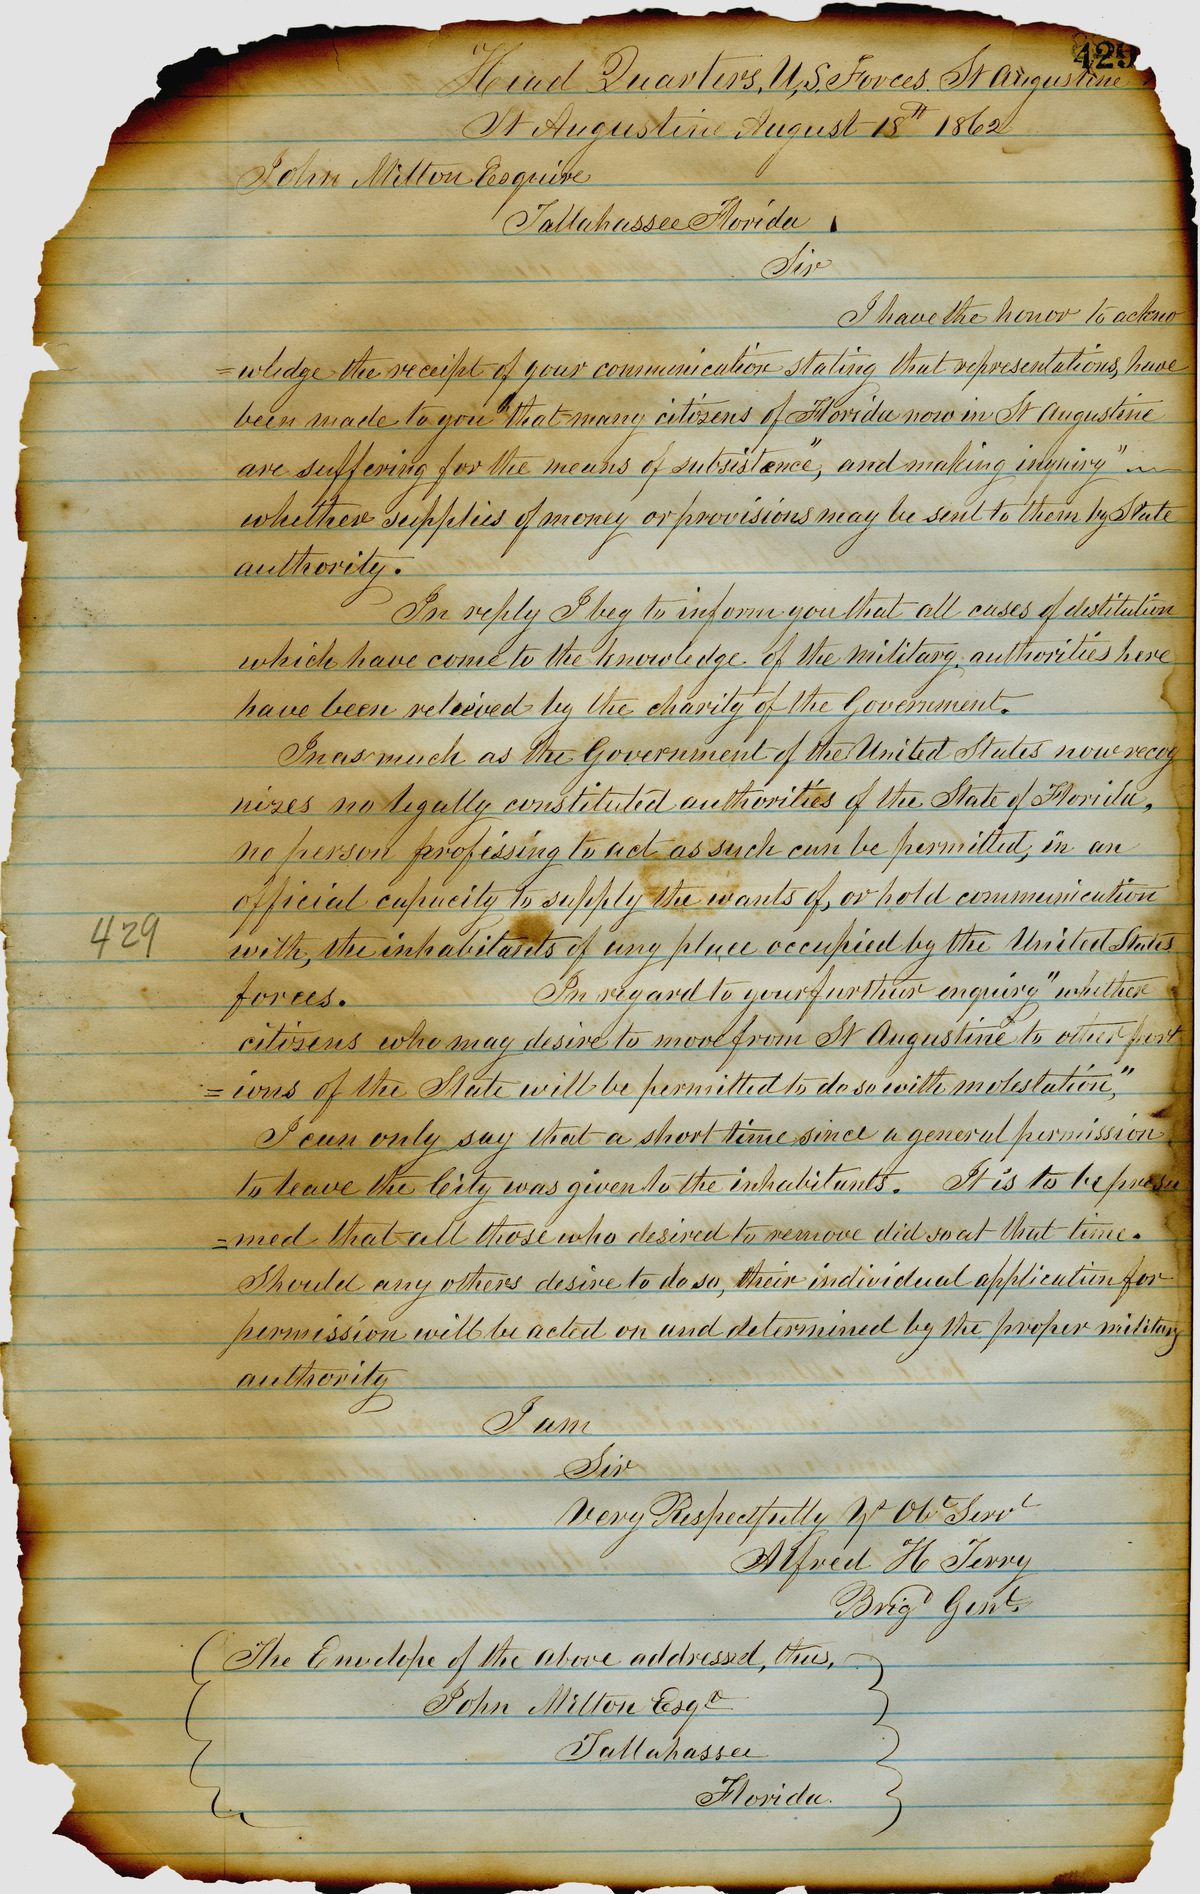 429
Head Quarters, U,S, Forces. St Augustine
St Augustine August 18th 1862
John Milton Esquire
Tallahassee Florida
Sir
I have the honor to ackno
=wledge the receipt of your communication stating that representations, have
been made to you "that many citizens of Florida now in St Augustine
are suffering for the means of subsistence", and making inquiry "
whether supplies of money or provisions may be sent to them by State
authority.
In reply I beg to inform you that all cases of destitution
which have come to the knowledge of the military, authorities here
have been relieved by the charity of the Government.
In as much as the Government of the United States now recog
nizes no legally constituted authorities of the State of Florida,
no person professing to act as such can be permitted, in an
official capacity to supply the wants of, or hold communication
with, the inhabitants of any place occupied by the United States
429
forces. In regard to your furthur enquiry "whether
citizens who may desire to move from St Augustine to other port
=ions of the State will be permitted to do so with molestation,"
I can only say that a short time since a general permission
to leave the City was given to the inhabitants. It is to be presu
=med that all those who desired to remove did so at that time.
Should any others desire to do so, their individual application for
permission will be acted on and determined by the proper military
authority
I am
Sir
Very Respectfully Yr Obt Servt
Alfred H Terry
Brigd Genl.
The Envelope of the above addressed, thus,
John Milton Esqr
Tallahassee
Florida.